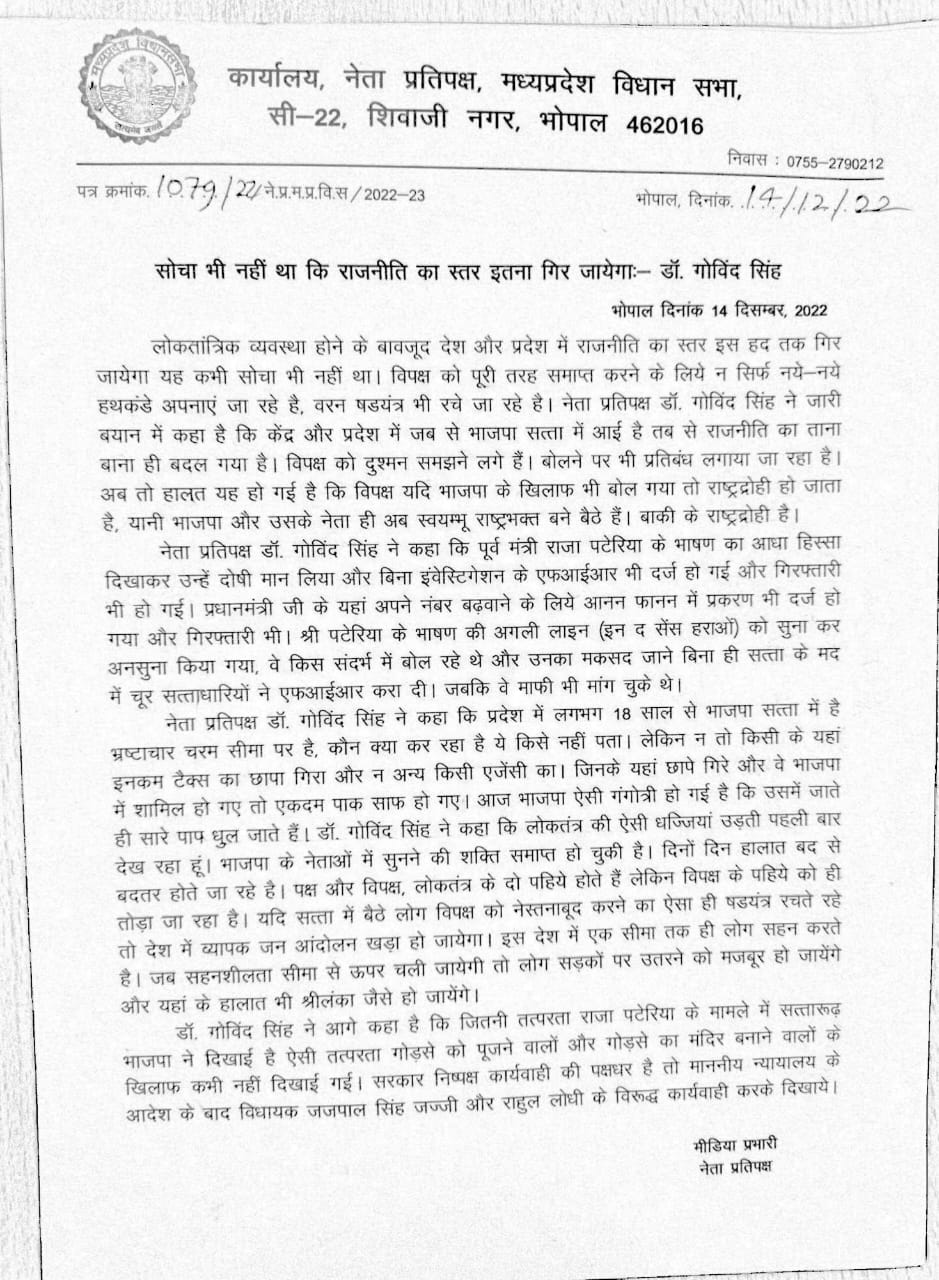 मध्यप्रदेश विधानसभा
सत्यमेव जयते
कार्यालय, नेता प्रतिपक्ष, मध्यप्रदेश विधान सभा,
सी–22, शिवाजी नगर, भोपाल 462016
निवास : 0755–2790212
पत्र क्रमांक. 1079/22/ने.प्र.म.प्र.वि.स/2022–23
भोपाल, दिनांक. 14/12/22
सोचा भी नहीं था कि राजनीति का स्तर इतना गिर जायेगाः– डॉ. गोविंद सिंह
भोपाल दिनांक 14 दिसम्बर, 2022
लोकतांत्रिक व्यवस्था होने के बावजूद देश और प्रदेश में राजनीति का स्तर इस हद तक गिर
जायेगा यह कभी सोचा भी नहीं था। विपक्ष को पूरी तरह समाप्त करने के लिये न सिर्फ नये–नये
हथकंडे अपनाएं जा रहे है, वरन षडयंत्र भी रचे जा रहे है। नेता प्रतिपक्ष डॉ. गोविंद सिंह ने जारी
बयान में कहा है कि केंद्र और प्रदेश में जब से भाजपा सत्ता में आई है तब से राजनीति का ताना
बाना ही बदल गया है। विपक्ष को दुश्मन समझने लगे हैं। बोलने पर भी प्रतिबंध लगाया जा रहा है।
अब तो हालत यह हो गई है कि विपक्ष यदि भाजपा के खिलाफ भी बोल गया तो राष्ट्रद्रोही हो जाता
है, यानी भाजपा और उसके नेता ही अब स्वयम्भू राष्ट्रभक्त बने बैठे हैं। बाकी के राष्ट्रद्रोही है।
नेता प्रतिपक्ष डॉ. गोविंद सिंह ने कहा कि पूर्व मंत्री राजा पटेरिया के भाषण का आधा हिस्सा
दिखाकर उन्हें दोषी मान लिया और बिना इंवेस्टिगेशन के एफआईआर भी दर्ज हो गई और गिरफ्तारी
भी हो गई। प्रधानमंत्री जी के यहां अपने नंबर बढ़वाने के लिये आनन फानन में प्रकरण भी दर्ज हो
गया और गिरफ्तारी भी। श्री पटेरिया के भाषण की अगली लाइन (इन द सेंस हराओं) को सुना कर
अनसुना किया गया, वे किस संदर्भ में बोल रहे थे और उनका मकसद जाने बिना ही सत्ता के मद
में चूर सत्ताधारियों ने एफआईआर करा दी। जबकि वे माफी भी मांग चुके थे।
नेता प्रतिपक्ष डॉ. गोविंद सिंह ने कहा कि प्रदेश में लगभग 18 साल से भाजपा सत्ता में है
भ्रष्टाचार चरम सीमा पर है, कौन क्या कर रहा है ये किसे नहीं पता। लेकिन न तो किसी के यहां
इनकम टैक्स का छापा गिरा और न अन्य किसी एजेंसी का। जिनके यहां छापे गिरे और वे भाजपा
में शामिल हो गए तो एकदम पाक साफ हो गए। आज भाजपा ऐसी गंगोत्री हो गई है कि उसमें जाते
ही सारे पाप धुल जाते हैं। डॉ. गोविंद सिंह ने कहा कि लोकतंत्र की ऐसी धज्जियां उड़ती पहली बार
देख रहा हूं। भाजपा के नेताओं में सुनने की शक्ति समाप्त हो चुकी है। दिनों दिन हालात बद से
बदतर होते जा रहे है। पक्ष और विपक्ष, लोकतंत्र के दो पहिये होते हैं लेकिन विपक्ष के पहिये को ही
तोड़ा जा रहा है। यदि सत्ता में बैठे लोग विपक्ष को नेस्तनाबूद करने का ऐसा ही षडयंत्र रचते रहे
तो देश में व्यापक जन आंदोलन खड़ा हो जायेगा। इस देश में एक सीमा तक ही लोग सहन करते
है। जब सहनशीलता सीमा से ऊपर चली जायेगी तो लोग सड़कों पर उतरने को मजबूर हो जायेंगे
और यहां के हालात भी श्रीलंका जैसे हो जायेंगे।
डॉ. गोविंद सिंह ने आगे कहा है कि जितनी तत्परता राजा पटेरिया के मामले में सत्तारूढ़
भाजपा ने दिखाई है ऐसी तत्परता गोड्से को पूजने वालों और गोड्से का मंदिर बनाने वालों के
खिलाफ कभी नहीं दिखाई गई। सरकार निष्पक्ष कार्यवाही की पक्षधर है तो माननीय न्यायालय के
आदेश के बाद विधायक जजपाल सिंह जज्जी और राहुल लोधी के विरूद्ध कार्यवाही करके दिखाये।
मीडिया प्रभारी
नेता प्रतिपक्ष